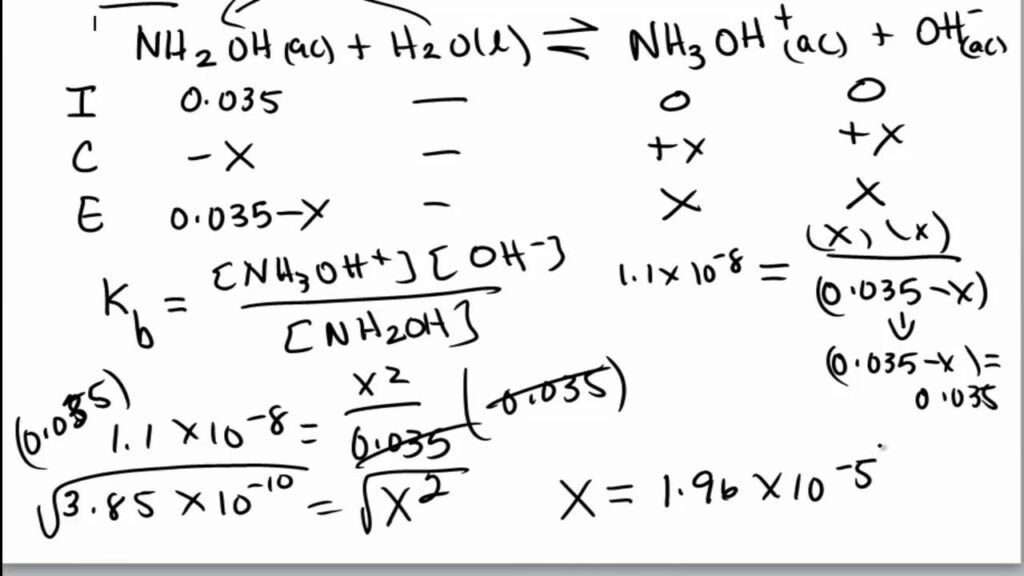 NH₂OH(ac) + H₂O(l) ⇌ NH₃OH⁺(ac) + OH⁻(ac)
I 0.035 — 0 0
C -X — +X +X
E 0.035-X - X X
K_b = [NH₃OH⁺][OH⁻] / [NH₂OH]
1.1 x 10⁻⁸ = (x)(x) / (0.035-x)
(0.035-x) = 0.035
(0.035) 1.1 X 10⁻⁸ = X² / 0.035 (0.035)
√3.85 X 10⁻¹⁰ = √X²
X = 1.96 X 10⁻⁵